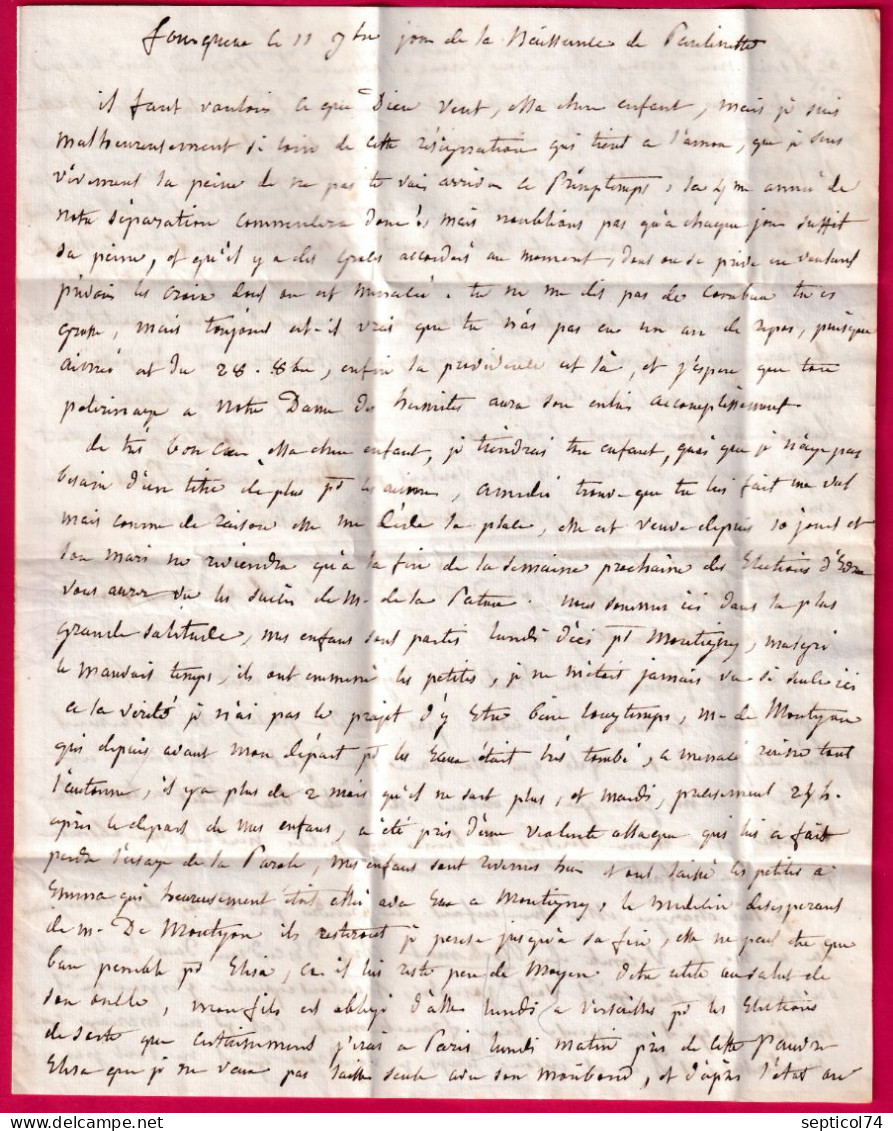 fourqueux le 11 9bre jour de la Naissance de Paulinette
il faut vouloir ce que Dieu veut, Ma chere enfant, mais je suis
malheureusement si loin de cette résignation qui tient a l'amour, que je sens
vivement la peine de ne pas te voir arriver ce Printemps, la 4me année de
notre séparation commencera donc!, mais n'oublions pas qu'à chaque jour suffit
sa peine, et qu'il y a des graces accordées au moment, dont on se prive en voulant
prévoir les croix dont on est menacée. tu ne me dis pas de combien tu es
grosse, mais toujours est-il vrai que tu n'as pas eu un an de repos, puisque
aimée est du 28. 8bre, enfin la providence est là, et j'espere que ton
pelerinage a Notre Dame des hermites aura son entier accomplissement.
de très bon coeur, Ma chere enfant, je tiendrai ton enfant, quoi que je n'aye pas
besoin d'un titre de plus pr les aimer, amélie trouve que tu lui fait un vol
mais comme de raison elle me cède la place, elle est veuve depuis 10 jours et
son mari ne reviendra qu'à la fin de la semaine prochaine des Elections d'
vous aurez vu les succès de M. de la Pature. nous sommes ici dans la plus
grande solitude, mes enfans sont partis lundi d'ici pr Montigny, malgré
le mauvais temps, ils ont emmené les petites, je ne m'etois jamais vue si seule ici
a la vérité je n'ai pas le projet d'y Etre bien longtemps, M. de Montyon
qui depuis avant mon départ pr les Eaux était très tombé, a menacé ruine tout
l'automne, il y a plus de 2 mois qu'il ne sort plus, et mardi, précisement 24 h.
après le depart de mes enfans, a été pris d'une violente attaque qui lui a fait
perdre l'usage de la Parole, mes enfans sont revenus hier et ont laissé les petites a
Emma qui heureusement étoit allée avec Eux a Montigny, le médecin desesperant
de M. De Montyon ils resteront je pense jusqu'à sa fin, elle ne peut etre que
bien penible pr Elisa, car il lui reste peu de Moyen d'etre utile au salut de
son oncle, mon fils est obligé d'aller lundi a Versailles pr les Elections
de sorte que certainement j'irai a Paris lundi matin près de cette Pauvre
Elisa que je ne veux pas laisser seule avec son moribond, et d'après l'état ou
septicol74